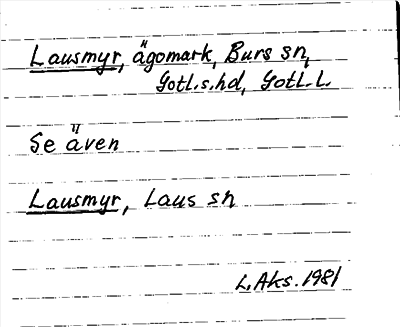 Lausmyr, ägomark, Burs sn,
Gotl.s.hd, Gotl.l.
Se även
Lausmyr, Laus sn
L.Aks. 1981